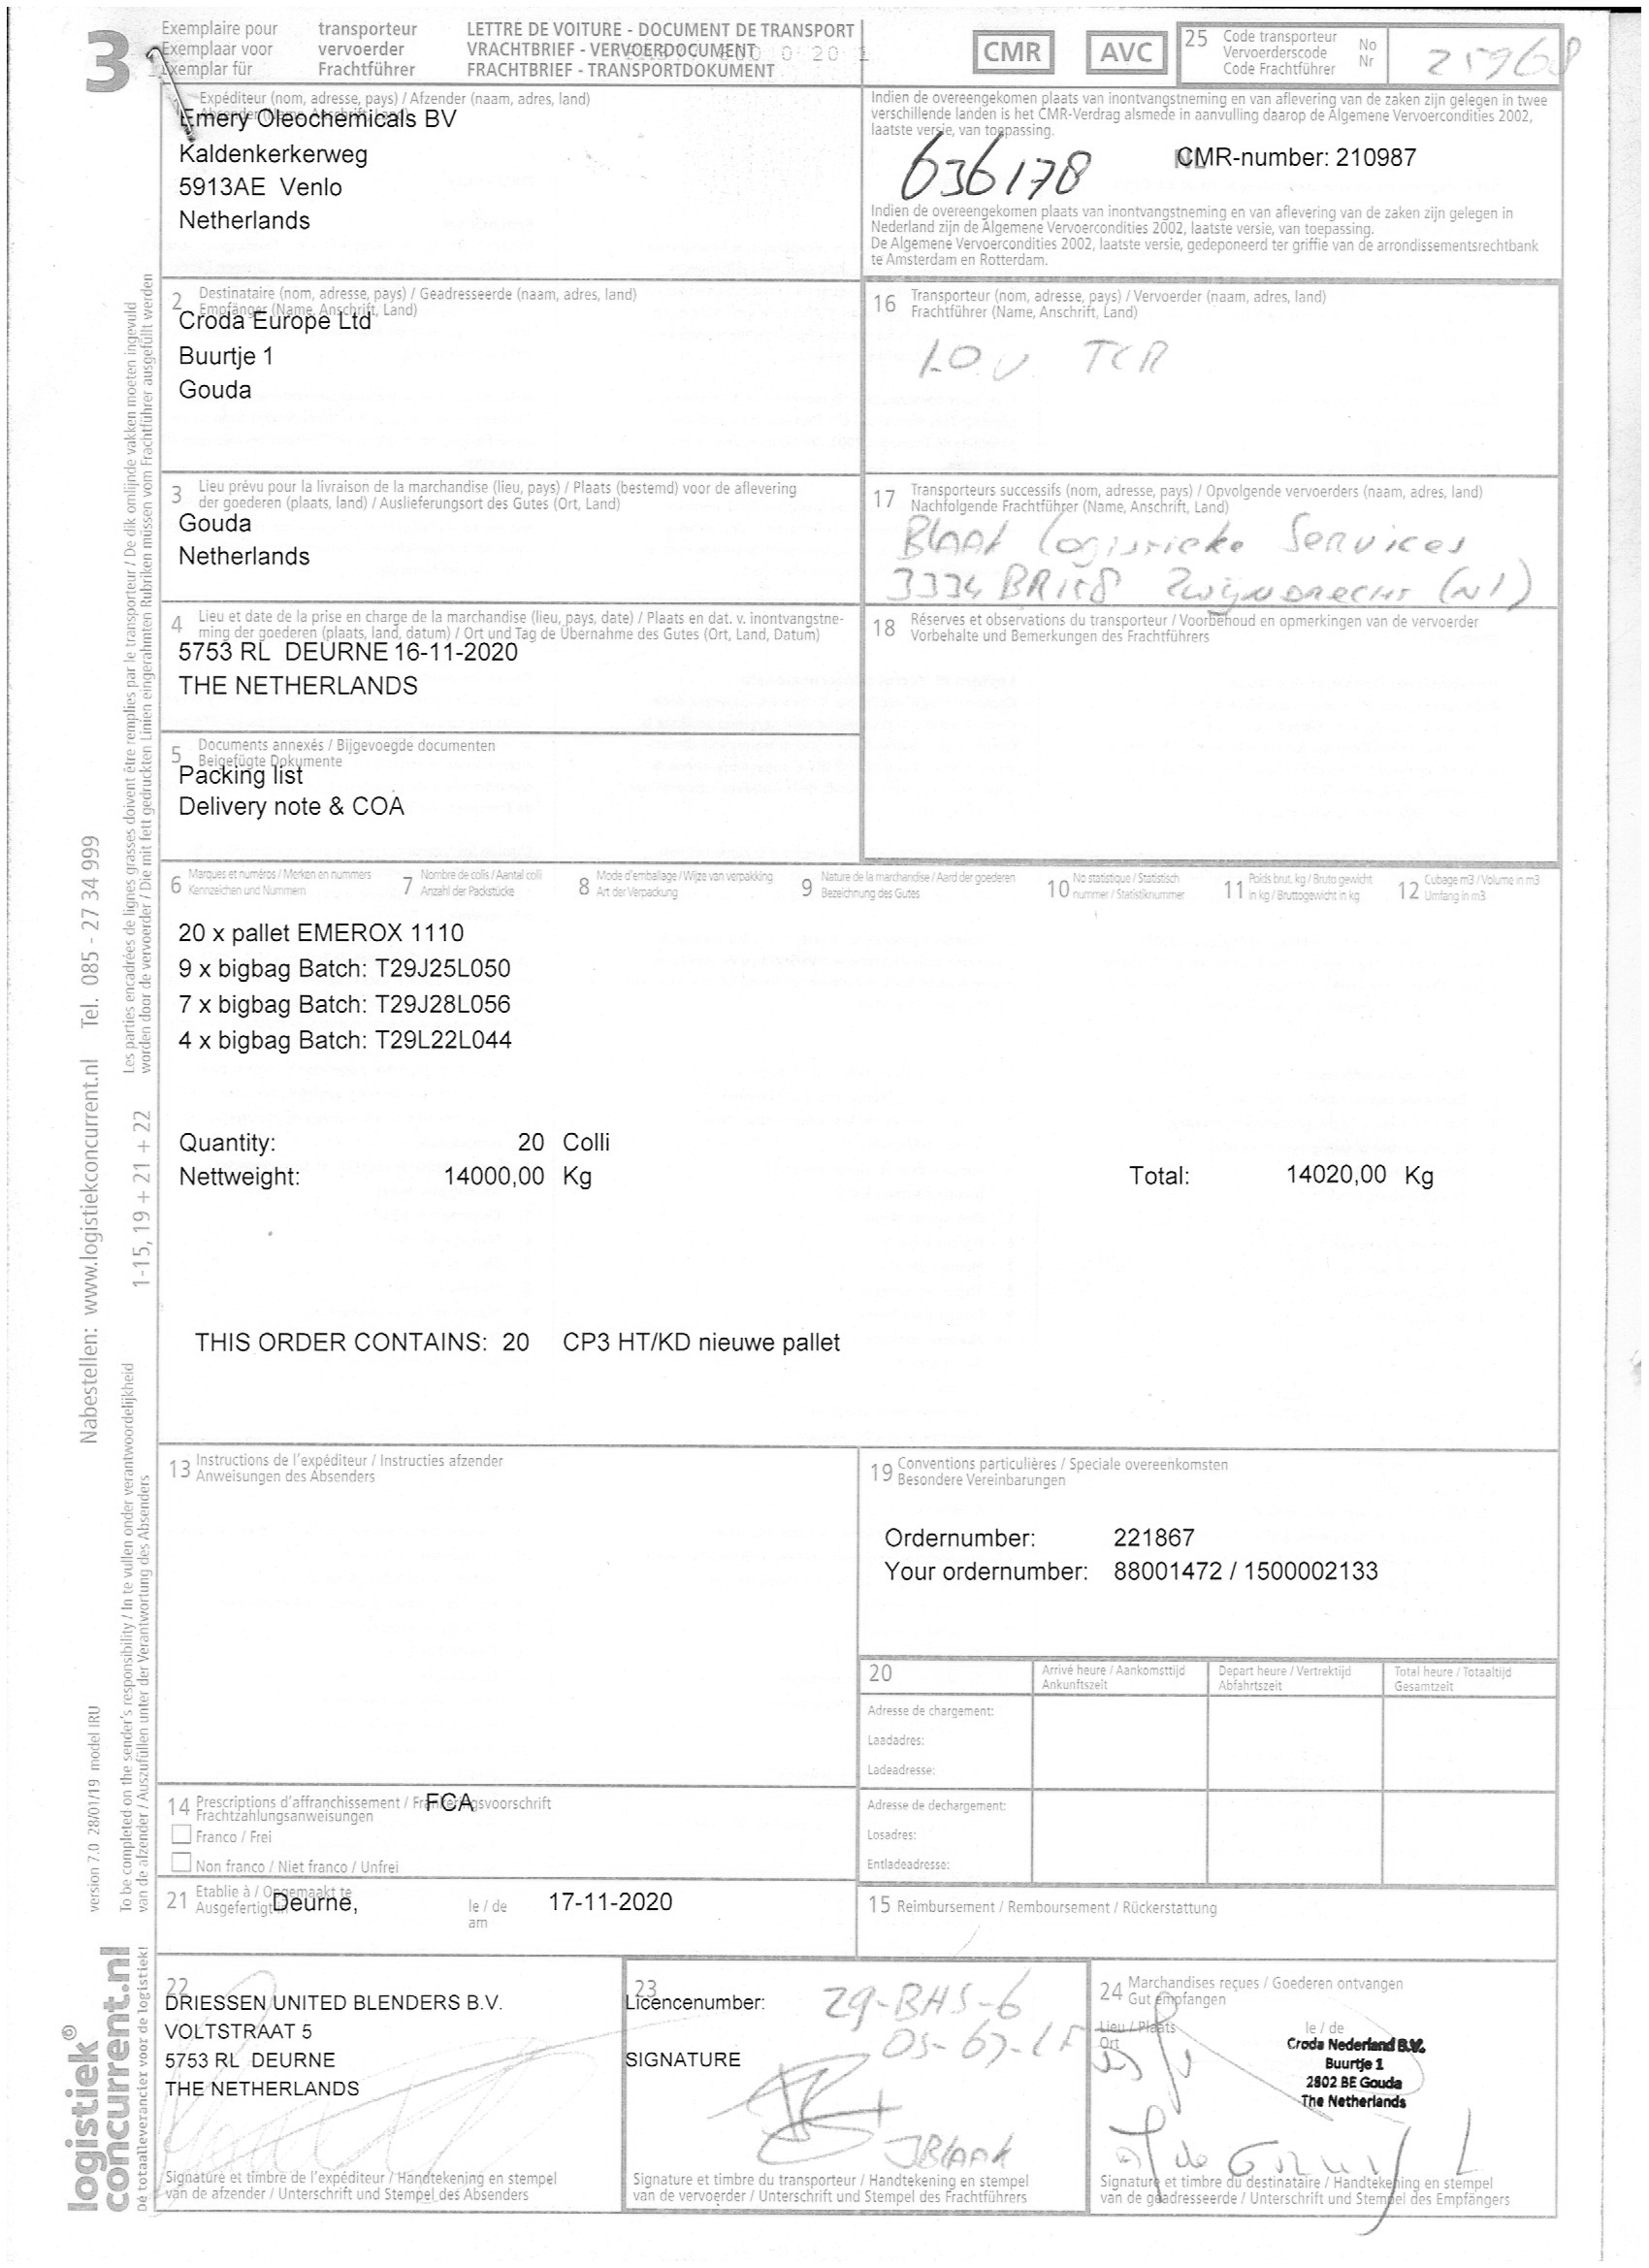 3
Exemplaire pour transporteur
Exemplaar voor vervoerder
Exemplar für Frachtführer
LETTRE DE VOITURE - DOCUMENT DE TRANSPORT
VRACHTBRIEF - VERVOERDOCUMENT
FRACHTBRIEF - TRANSPORTDOKUMENT
CMR
AVC
25 Code transporteur
Vervoerderscode
Code Frachtführer
No
Nr
25968
Expéditeur (nom, adresse, pays) / Afzender (naam, adres, land)
Emery Oleochemicals BV
Kaldenkerkerweg
5913AE Venlo
Netherlands
Indien de overeengekomen plaats van inontvangstneming en van aflevering van de zaken zijn gelegen in twee
verschillende landen is het CMR-Verdrag alsmede in aanvulling daarop de Algemene Vervoercondities 2002,
laatste versie, van toepassing.
636178
CMR-number: 210987
Indien de overeengekomen plaats van inontvangstneming en van aflevering van de zaken zijn gelegen in
Nederland zijn de Algemene Vervoercondities 2002, laatste versie, van toepassing.
De Algemene Vervoercondities 2002, laatste versie, gedeponeerd ter griffie van de arrondissementsrechtbank
te Amsterdam en Rotterdam.
2 Destinataire (nom, adresse, pays) / Geadresseerde (naam, adres, land)
Empfänger (Name, Anschrift, Land)
Croda Europe Ltd
Buurtje 1
Gouda
16 Transporteur (nom, adresse, pays) / Vervoerder (naam, adres, land)
Frachtführer (Name, Anschrift, Land)
I.O.V. TCR
3 Lieu prévu pour la livraison de la marchandise (lieu, pays) / Plaats (bestemd) voor de aflevering
der goederen (plaats, land) / Auslieferungsort des Gutes (Ort, Land)
Gouda
Netherlands
17 Transporteurs successifs (nom, adresse, pays) / Opvolgende vervoerders (naam, adres, land)
Nachfolgende Frachtführer (Name, Anschrift, Land)
Blaak Logistieke Services
3334 BR Zwijndrecht (Nl)
4 Lieu et date de la prise en charge de la marchandise (lieu, pays, date) / Plaats en dat. v. inontvangstne-
ming der goederen (plaats, land, datum) / Ort und Tag de Übernahme des Gutes (Ort, Land, Datum)
5753 RL DEURNE 16-11-2020
THE NETHERLANDS
18 Réserves et observations du transporteur / Voorbehoud en opmerkingen van de vervoerder
Vorbehalte und Bemerkungen des Frachtführers
5 Documents annexés / Bijgevoegde documenten
Beigefügte Dokumente
Packing list
Delivery note & COA
6 Marques et numéros / Merken en nummers
Kennzeichen und Nummern
7 Nombre de colis / Aantal colli
Anzahl der Packstücke
8 Mode d'emballage / Wijze van verpakking
Art der Verpackung
9 Nature de la marchandise / Aard der goederen
Bezeichnung des Gutes
10 No statistique / Statistisch
nummer / Statistiknummer
11 Poids brut, kg / Bruto gewicht
in kg / Bruttogewicht in kg
12 Cubage m3 / Volume in m3
Umfang in m3
20 x pallet EMEROX 1110
9 x bigbag Batch: T29J25L050
7 x bigbag Batch: T29J28L056
4 x bigbag Batch: T29L22L044
Quantity: 20 Colli
Nettweight: 14000,00 Kg Total: 14020,00 Kg
THIS ORDER CONTAINS: 20 CP3 HT/KD nieuwe pallet
13 Instructions de l'expéditeur / Instructies afzender
Anweisungen des Absenders
19 Conventions particulières / Speciale overeenkomsten
Besondere Vereinbarungen
Ordernumber: 221867
Your ordernumber: 88001472 / 1500002133
20
Arrivé heure / Aankomsttijd
Ankunftszeit
Depart heure / Vertrektijd
Abfahrtszeit
Total heure / Totaaltijd
Gesamtzeit
Adresse de chargement:
Laadadres:
Ladeadresse:
Adresse de dechargement:
Losadres:
Entladeadresse:
14 Prescriptions d'affranchissement / Frankeringsvoorschrift
FCA
Frachtzahlungsanweisungen
Franco / Frei
Non franco / Niet franco / Unfrei
21 Etablie à / Opgemaakt te
Ausgefertigt in
Deurne,
le / de
am
17-11-2020
15 Reimbursement / Remboursement / Rückerstattung
22
DRIESSEN UNITED BLENDERS B.V.
VOLTSTRAAT 5
5753 RL DEURNE
THE NETHERLANDS
Signature et timbre de l'expéditeur / Handtekening en stempel
van de afzender / Unterschrift und Stempel des Absenders
23
Licencenumber:
29-BHS-6
SIGNATURE
JBlaak
Signature et timbre du transporteur / Handtekening en stempel
van de vervoerder / Unterschrift und Stempel des Frachtführers
24 Marchandises reçues / Goederen ontvangen
Gut empfangen
Lieu / Plaats
Ort
le / de
Croda Nederland B.V.
Buurtje 1
2802 BE Gouda
The Netherlands
Signature et timbre du destinataire / Handtekening en stempel
van de geadresseerde / Unterschrift und Stempel des Empfängers
Les parties encadrées de lignes grasses doivent être remplies par le transporteur / De dik omlijnde vakken moeten ingevuld
worden door de vervoerder / Die mit fett gedruckten Linien eingerahmten Rubriken müssen vom Frachtführer ausgefüllt werden
1-15, 19 + 21 + 22
To be completed on the sender's responsibility / In te vullen onder verantwoordelijkheid
van de afzender / Auszufüllen unter der Verantwortung des Absenders
Nabestellen: www.logistiekconcurrent.nl Tel. 085 - 27 34 999
version 7.0 28/01/19 model IRU
logistiek
concurrent.nl
Dé totaalleverancier voor de logistiek!